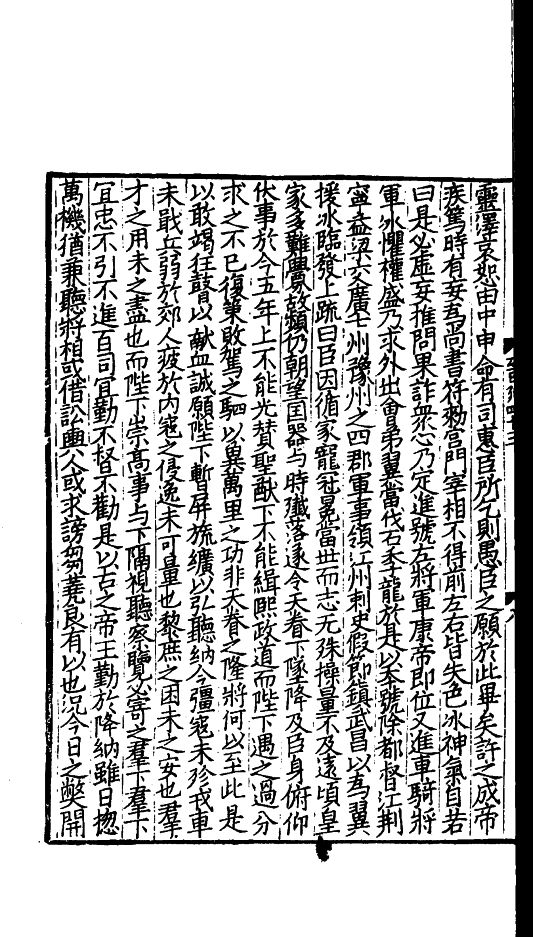 靈澤哀恕由中申命有司惠臣所乞則愚臣之願於此畢矣許之成帝
疾篤時有妄為尚書符勑宮門宰相不得前左右皆失色冰神氣自若
曰是必虛妄推問果詐衆心乃定進號左將軍康帝即位又進車騎將
軍冰懼權盛乃求外出會弟翼當伐石季龍於是以本號除都督江荆
寧益梁交廣七州豫州之四郡軍事領江州刺史假節鎮武昌以爲翼
援冰臨發上疏曰臣因循家寵冠冕當世而志无殊操量不及遠頃皇
家多難舋故頻仍朝望国器与時殱落遂令天眷下墜降及臣身俯仰
伏事於今五年上不能光賛聖猷下不能緝熙政道而陛下遇之過分
求之不已復策敗駕之駟以冀萬里之功非天眷之隆將何以至此是
以敢竭狂瞽以献血誠願陛下暫屏旒纊以弘聽納今彊寇未殄戎車
未戢兵弱於郊人疲於内寇之侵逸未可量也黎庶之困未之安也羣
才之用未之盡也而陛下崇高事与下隔視聽察覽必寄之羣下羣下
宜忠不引不進百司宜勤不督不勸是以古之帝王勤於降納雖日揔
萬機猶兼聽將相或借訟輿人或求謗芻蕘良有以也况今日之弊開